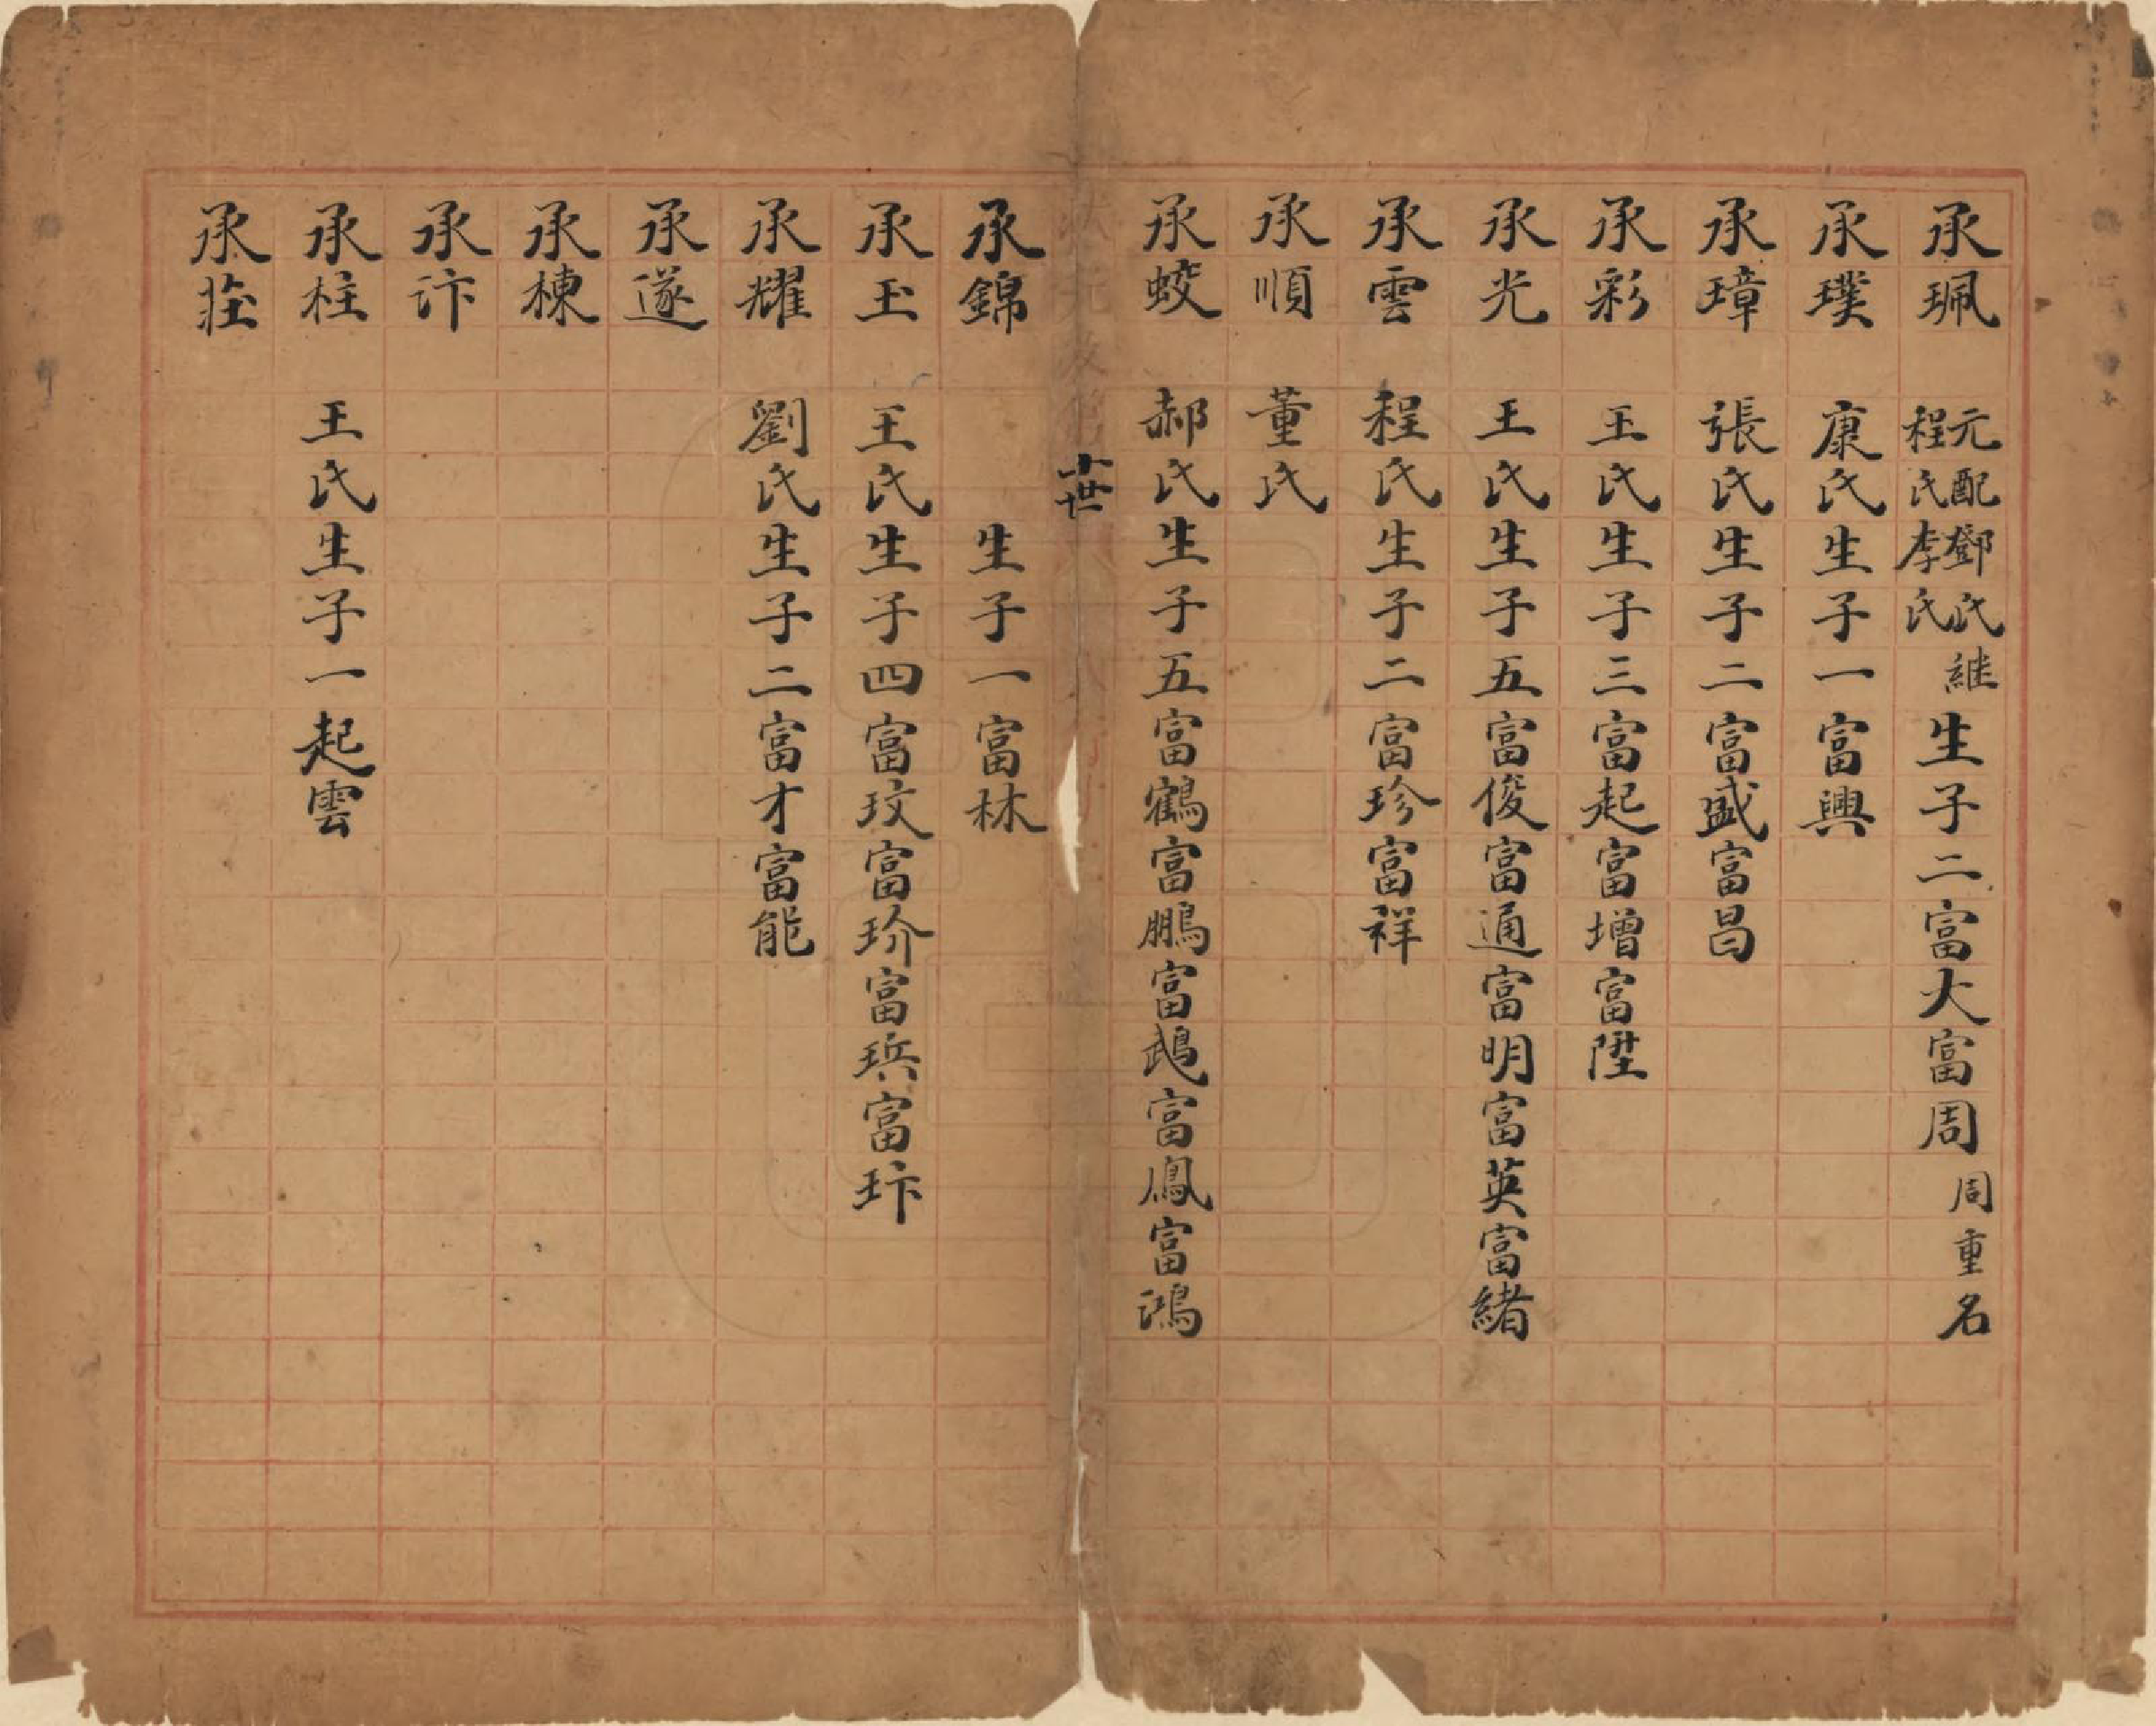 承珮 元配鄧氏継程氏李氏 生子二富大富周 周重名
承璞 康氏生子一富興
承璋 張氏生子二富盛富昌
承彩 王氏生子三富起富增富陞
承光 王氏生子五富俊富通富明富英富緒
承雲 程氏生子二富珍富祥
承順 董氏
承蛟 郝氏生子五富鶴富鵬富鵡富鳳富鴻
十世
承錦 生子一富林
承玉 王氏生子四富玟富玠富珗富玣
承耀 劉氏生子二富才富能
承遂
承棟
承汴
承柱 王氏生子一起雲
承莊